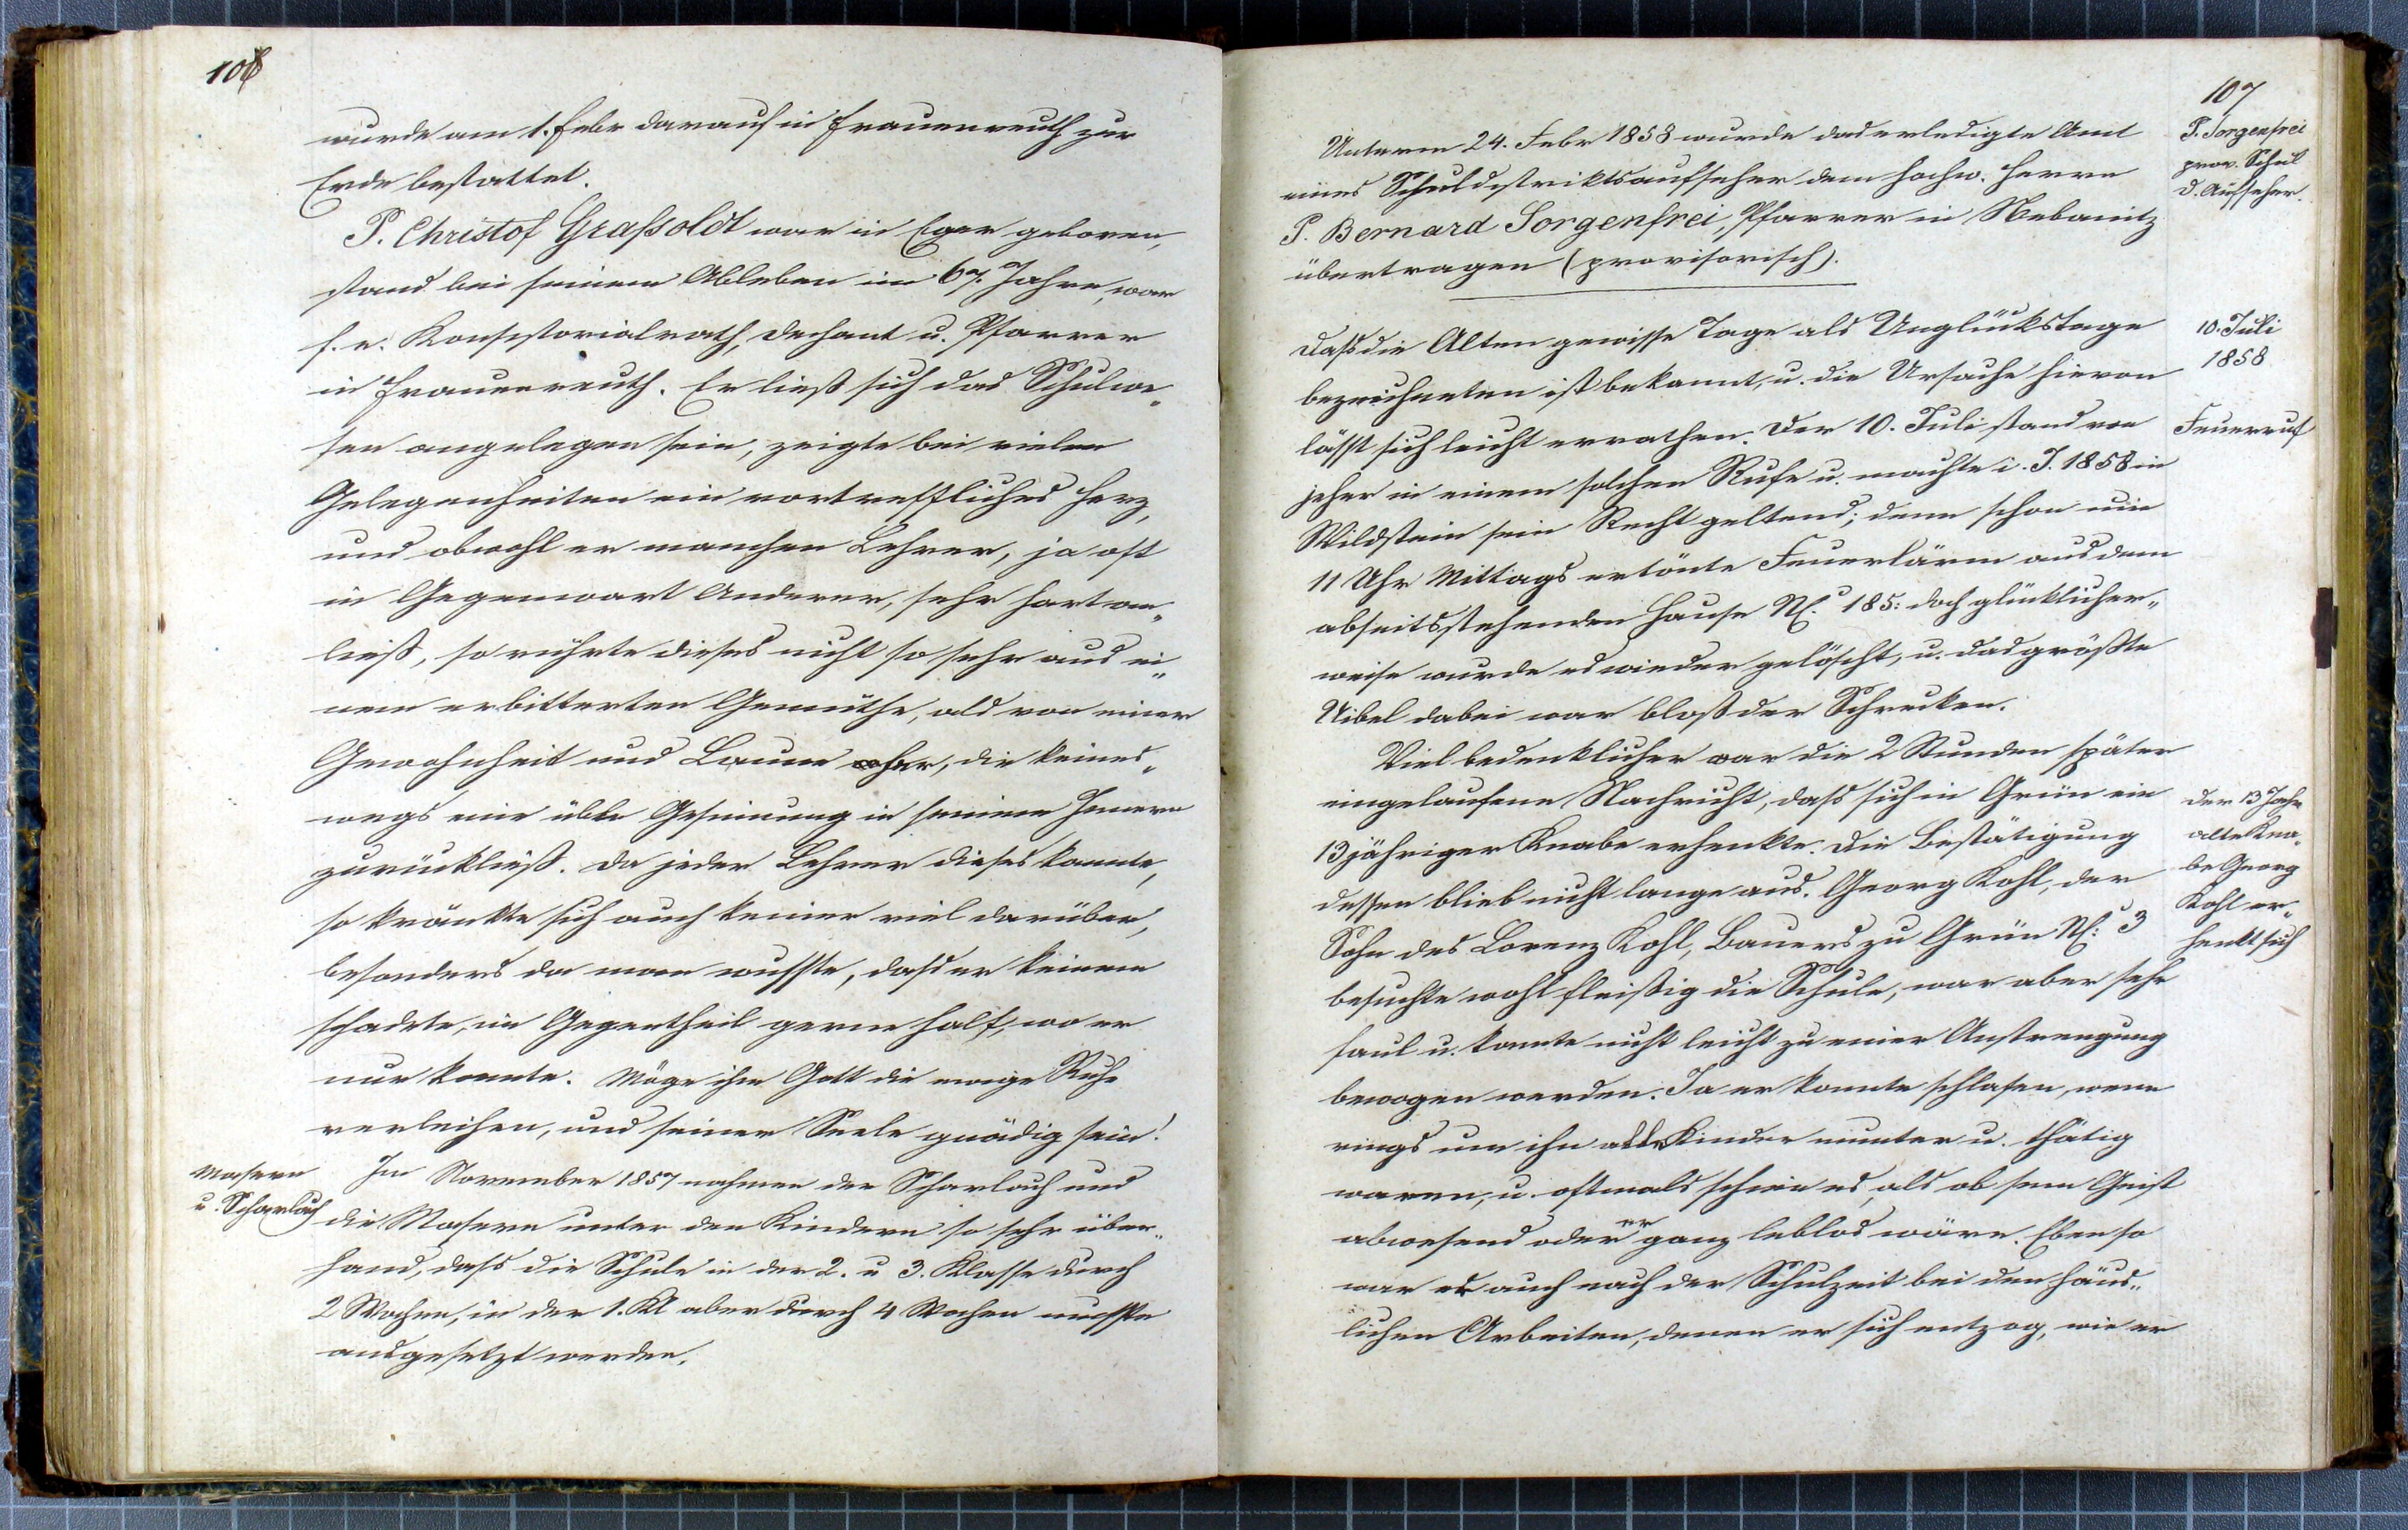 106
wurde am 1. Febr darauf in Frauenreuth zur
Erde bestattet.
P. Christof Graßoldt war in Eger geboren,
stand bei seinem Ableben im 67. Jahre, war
f. e. Konsistorialrath, Dechant u. Pfarrer
in Frauenreuth. Er ließ sich das Schulwe„
sen angelegen sein, zeigte bei vielen
Gelegenheiten ein vortreffliches Herz,
und obwohl er manchen Lehrer, ja oft
in Gegenwart Anderer, sehr hart an„
ließ, so rührte dieses nicht so sehr aus ei„
nem erbitterten Gemüthe, als von einer
Gewohnheit und Laune her, die keines„
wegs eine üble Gesinnung in seinem Innern
zurückließ. Da jeder Lehrer dieses kannte,
so kränkte sich auch keiner viel darüber,
besonders da man wusste, dass er keinem
schadete, im Gegentheil gerne half, wo er
nur konnte. Möge ihm Gott die ewige Ruhe
verleihen, und seiner Seele gnädig sein!
Masern
u. Scharlach
Im November 1857 nahmen der Scharlach und
die Masern unter den Kindern so sehr über„
hand, dass die Schule in der 2. u 3. Klasse durch
2 Wochen, in der 1. Kl aber durch 4 Wochen musste
ausgesetzt werden.
107
P. Sorgenfrei
prov. Schul
d. Aufseher.
Unterm 24. Febr 1858 wurde das erledigte Amt
eines Schuldistriktsaufseher dem hochw. Herrn
P. Bernard Sorgenfrei, Pfarrer in Nebanitz
übertragen (provisorisch).
10. Juli
1858
Feuerruf
Dass die Alten gewisse Tage als Unglückstage
bezeichneten ist bekannt, u. die Ursache hievon
lässt sich leicht errathen. Der 10. Juli stand von
jeher in einem solchen Rufe u. machte i. J. 1858 in
Wildstein sein Recht geltend; denn schon um
11 Uhr Mittags ertönte Feuerlärm aus dem
abseitsstehenden Hause No. 185: doch glücklicher„
weise wurde es wieder gelöscht, u. das größte
Uibel dabei war bloß der Schrecken.
Viel bedenklicher war die 2 Stunden später
eingelaufene Nachricht, dass sich in Grün ein
13jähriger Knabe erhenkte. Die Bestätigung
dessen blieb nicht lange aus. Georg Kohl, der
Sohn des Lorenz Kohl, Bauers zu Grün No: 3
besuchte wohl fleißig die Schule, war aber sehr
faul u. konnte nicht leicht zu einer Anstrengung
bewogen werden. Ja er konnte schlafen, wenn
rings um ihn alle Kinder munter u. thätig
waren, u. oftmals schien es, als ob sein Geist
abwesend oder er ganz leblos wäre. Ebenso
war es auch nach der Schulzeit bei den häus„
lichen Arbeiten, denen er sich entzog, wie er
der 13 Jahr
alte Kna„
be Georg
Kohl er„
henkt sich